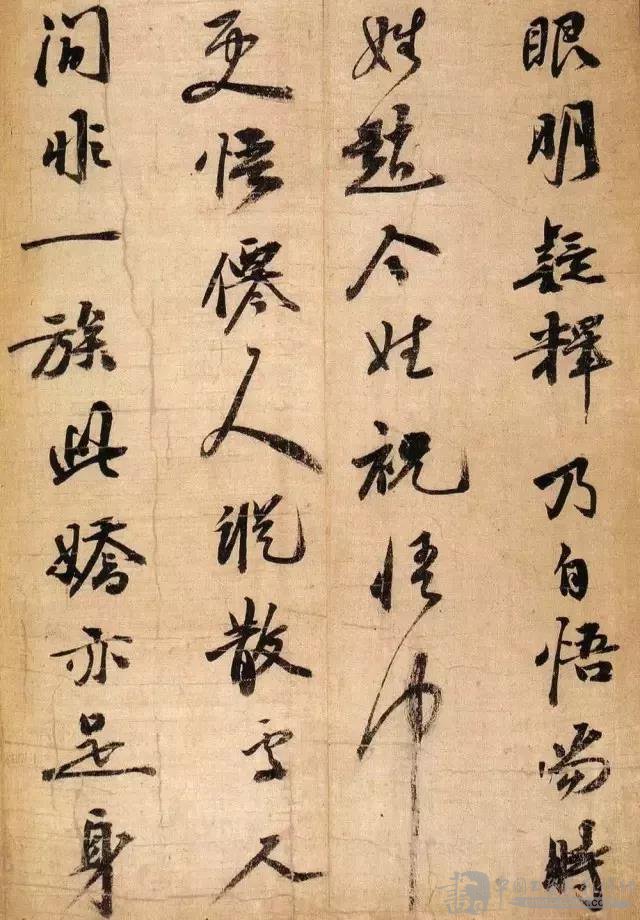 眼明疑釋乃自悟當時
姓趙今姓祝悟中
更悟僊人散人
間非一族此嬌亦足身